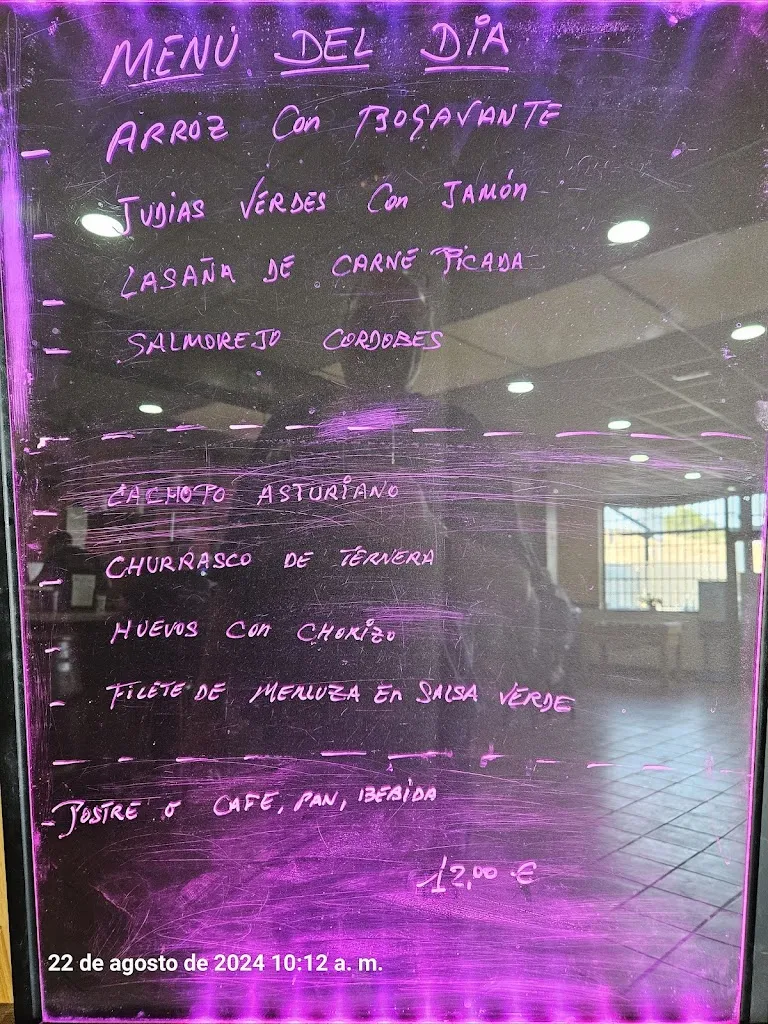 MENÚ DEL DIA
- ARROZ con BOGAVANTE
- JUDIAS VERDES con JAMÓN
- LASAÑA DE CARNE PICADA
- SALMOREJO CORDOBES
- CACHOPO ASTURIANO
- CHURRASCO DE TERNERA
- HUEVOS con CHORIZO
- FILETE DE MERLUZA En SALSA VERDE
- POSTRE o CAFE, PAN, BEBIDA
12,00 €
22 de agosto de 2024 10:12 a. m.